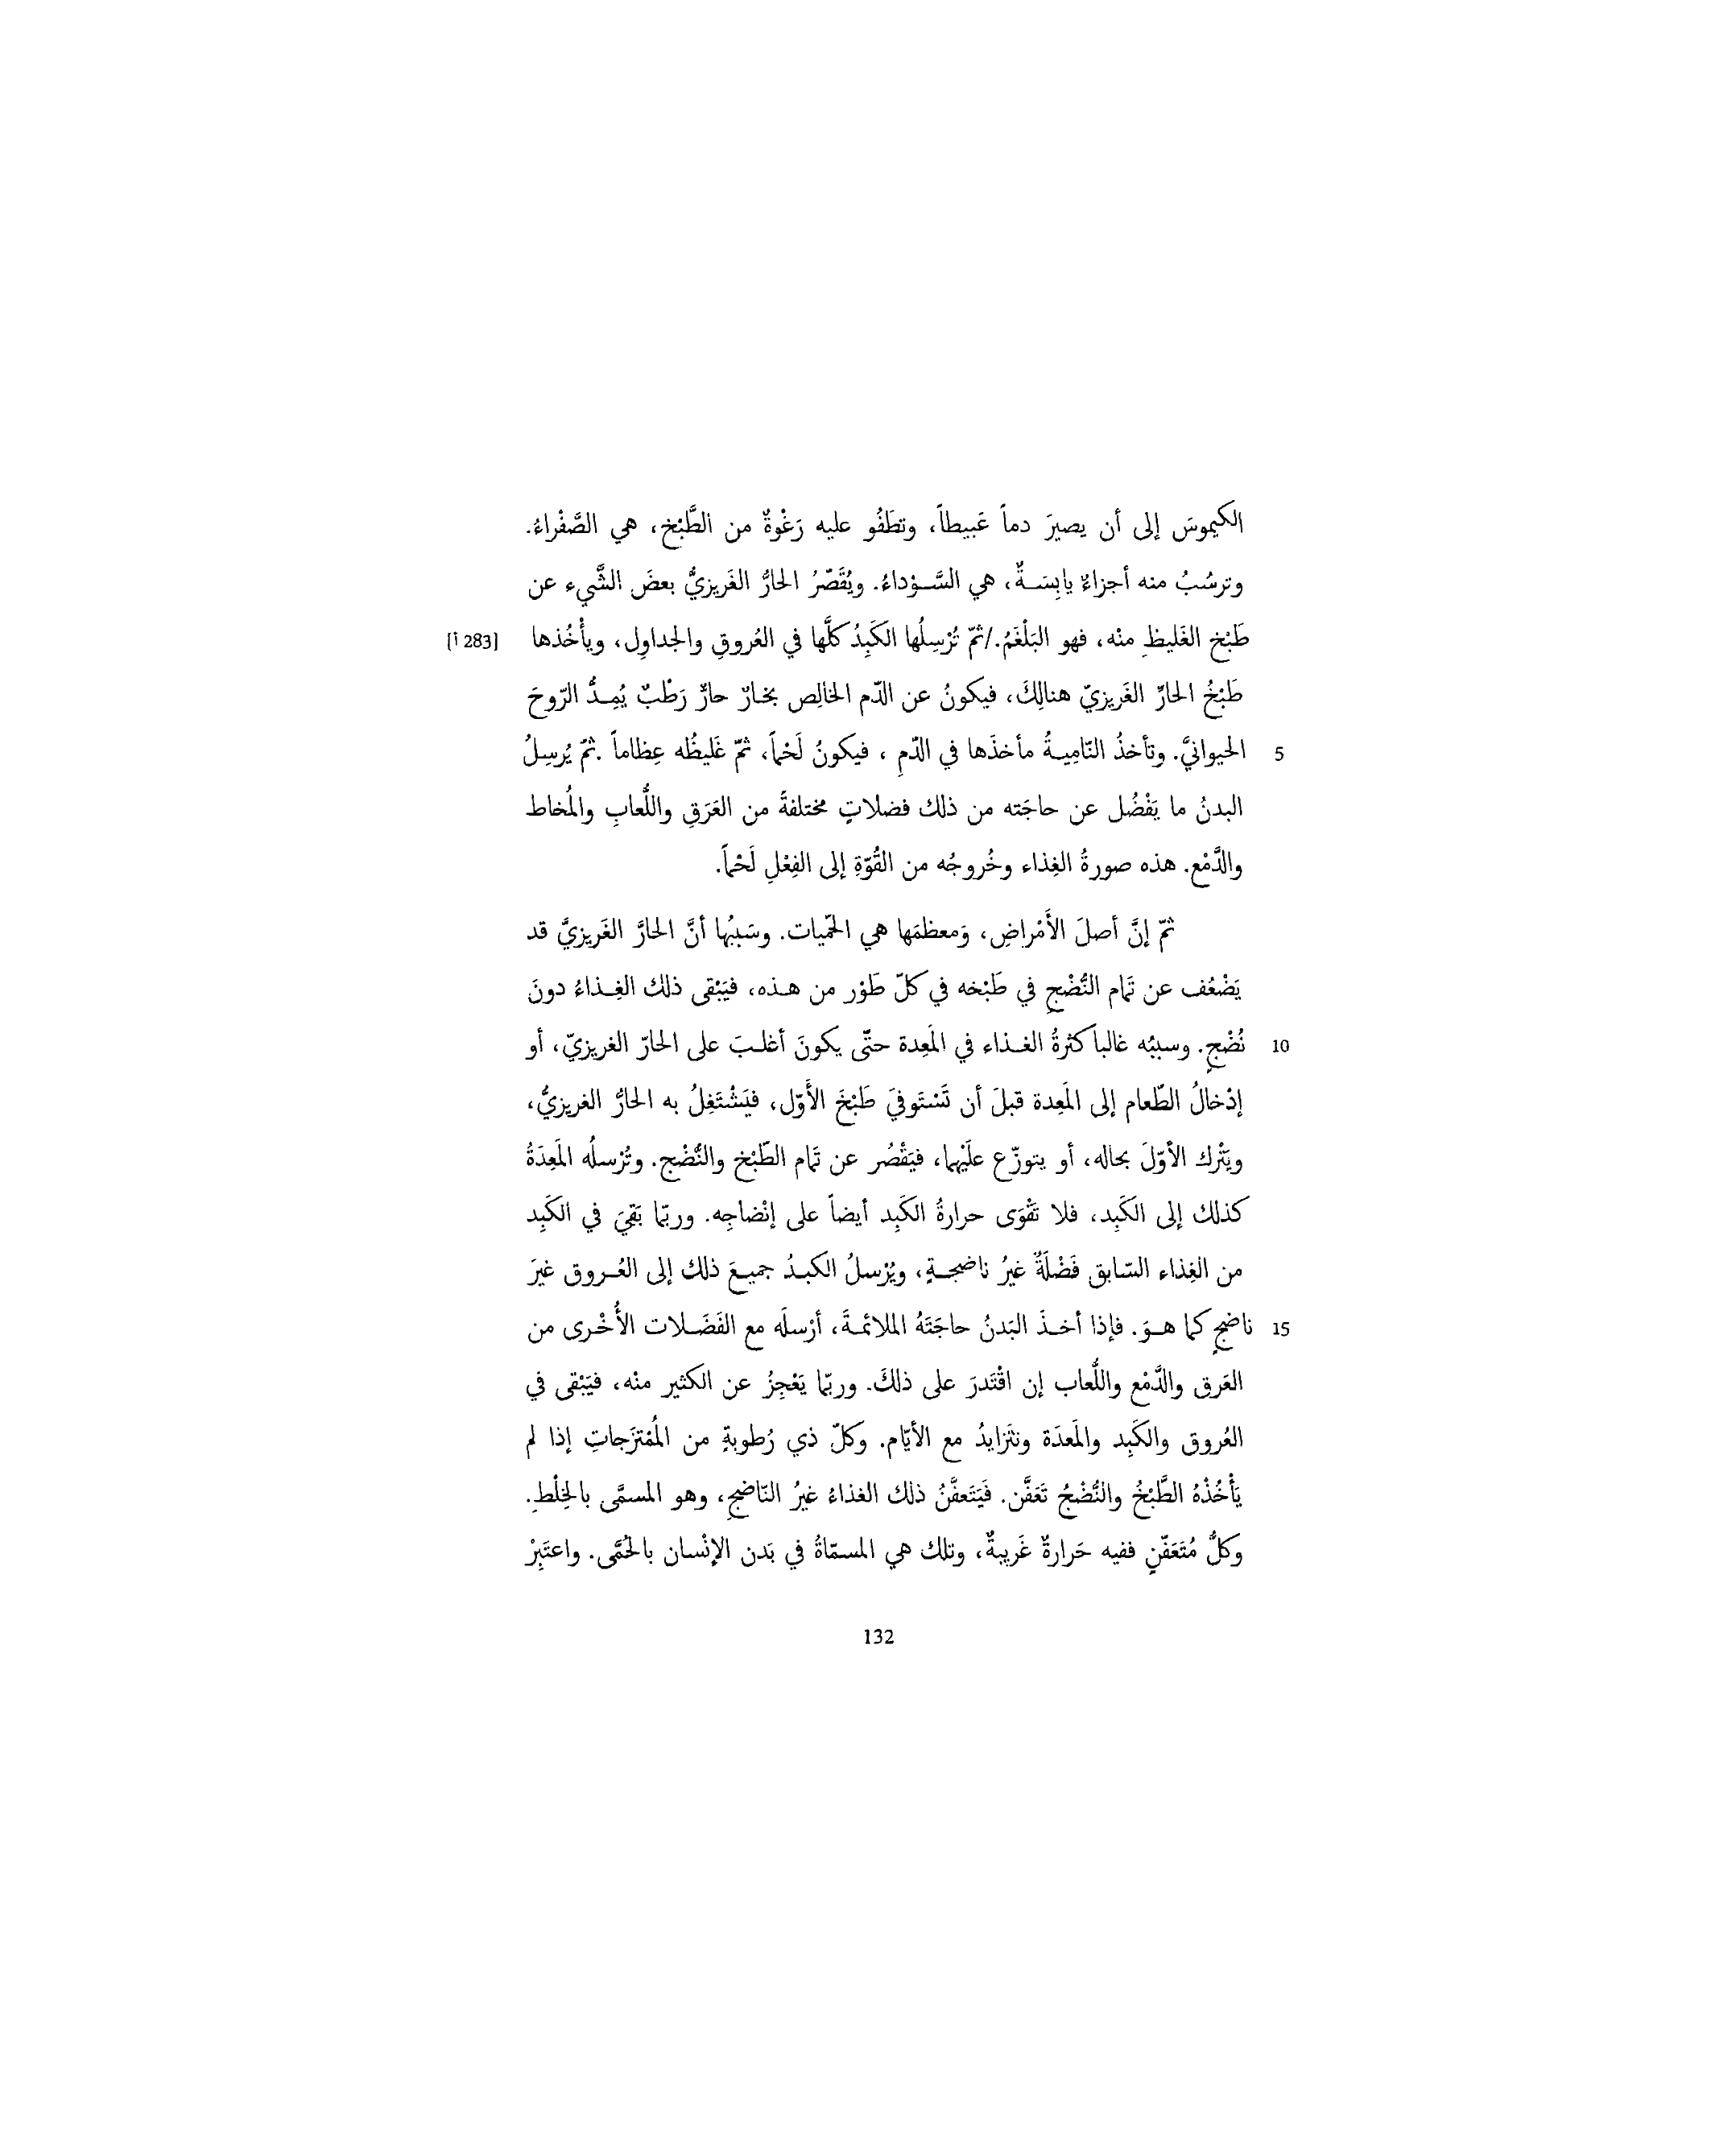 الكيموسَ إلى أن يصيرَ دماً عَبيطاً، وتطَفُو عليه رَغْوةٌ من الطَّبْخ، هي الصَّفْراءُ.
وترسُبُ منه أجزاءٌ يابِسَـةٌ، هي السَّـوْداءُ. ويُقَصّرُ الحارُّ الغَريزيُّ بعضَ الشَّيء عن
طَبْخ الغَليظِ منْه، فهو البَلْغَمُ./ثمّ تُرْسِلُها الكَبِدُ كلَّها في العُروقِ والجداوِل، ويأْخُذها [283 أ]
طَبْخُ الحارِّ الغَريزيّ هنالِكَ، فيكونُ عن الدّم الخالِص بخـارٌ حارٌّ رَطْبٌ يُمِـدُّ الرّوحَ
5 الحيوانيَّ. وتأخذُ النّامِيـةُ مأخذَها في الدّمِ ، فيكونُ لَحْماً، ثمّ غَليظُه عِظاماً .ثمّ يُرسِلُ
البدنُ ما يَفْضُل عن حاجَته من ذلك فضلاتٍ مختلفةً من العَرَقِ واللُّعابِ والمُخاط
والدَّمْع. هذه صورةُ الغِذاء وخُروجُه من القُوّةِ إلى الفِعْلِ لَحْماً.
ثمّ إنَّ أصلَ الأَمْراضِ، وَمعظمَها هي الحمّيات. وسَببُها أنَّ الحارَّ الغَريزيَّ قد
يَضْعُف عن تَمام النُّضْجِ في طَبْخه في كلّ طَوْر من هـذه، فيَبْقى ذلك الغِـذاءُ دونَ
10 نُضْجٍ. وسببُه غالباً كثرةُ الغـذاء في المَعِدة حتّى يكونَ أغلـبَ على الحارّ الغريزيّ، أو
إدْخالُ الطّعام إلى المَعِدة قبلَ أن تَسْتَوفيَ طَبْخَ الأَوّل، فيَشْتَغِلُ به الحارُّ الغريزيُّ،
ويَتْرك الأوّلَ بحاله، أو يتوزّع علَيْهما، فيَقْصُر عن تَمام الطّبْخ والنُّضْج. وتُرْسلُه المَعِدَةُ
كذلك إلى الكَبِد، فلا تَقْوَى حرارةُ الكَبِد أيضاً على إنْضاجِه. وربّما بَقيَ في الكَبِد
من الغِذاء السّابق فَضْلَةٌ غيرُ ناضجـةٍ، ويُرْسلُ الكبـدُ جميـعَ ذلك إلى العُـروق غيرَ
15 ناضجٍ كما هـوَ. فإذا أخـذَ البَدنُ حاجَتَهُ الملائمـةَ، أرْسلَه مع الفَضَـلات الأُخْرى من
العَرق والدَّمْع واللُّعاب إن اقْتَدرَ على ذلكَ. وربّما يَعْجِزُ عن الكثير منْه، فيَبْقى في
العُروق والكَبِد والمَعدَة ونتَزايدُ مع الأيّام. وكلّ ذي رُطوبةٍ من المُمْتزَجاتِ إذا لم
يَأْخُذْهُ الطَّبْخُ والنُّضْجُ تَعَفَّن. فَيَتَعفَّنُ ذلك الغذاءُ غيرُ النّاضجِ، وهو المسمَّى بالخِلْطِ.
وكلُّ مُتَعَفّنٍ ففيه حَرارةٌ غَريبةٌ، وتلك هي المسمّاةُ في بَدن الإنْسان بالحُمَّى. واعتَبِرْ
132